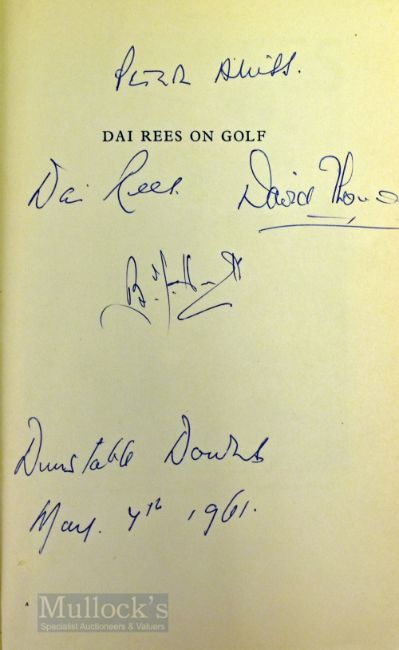 Peter Alliss.
DAI REES ON GOLF
Dai Rees. David Thomas
Dunstable Downs
May. 7th 1961.
Mullock's
Specialist Auctioneers & Valuers